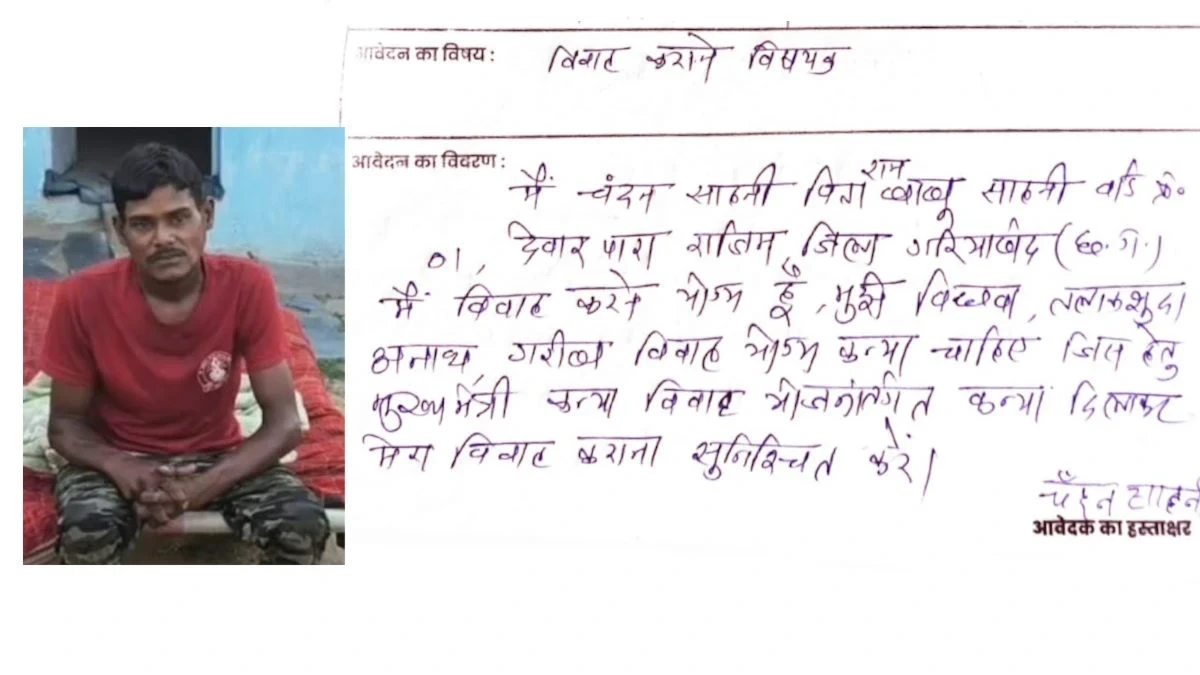 आवेदन का विषय : विवाह कराने विषयक
आवेदन का विवरण :
राम
मैं चंदन साहनी पिता बाबू साहनी वार्ड क्रं०
01, देवार पारा राजिम, जिला गरियाबंद (छ. ग.)
मैं विवाह करने योग्य हूँ, मुझे विधवा, तलाकशुदा
अनाथ, गरीब विवाह योग्य कन्या चाहिए जिस हेतु
मुख्यमंत्री कन्या विवाह योजनांतर्गत कन्या दिलाकर
मेरा विवाह कराना सुनिश्चित करें।
चंदन साहनी
आवेदक का हस्ताक्षर